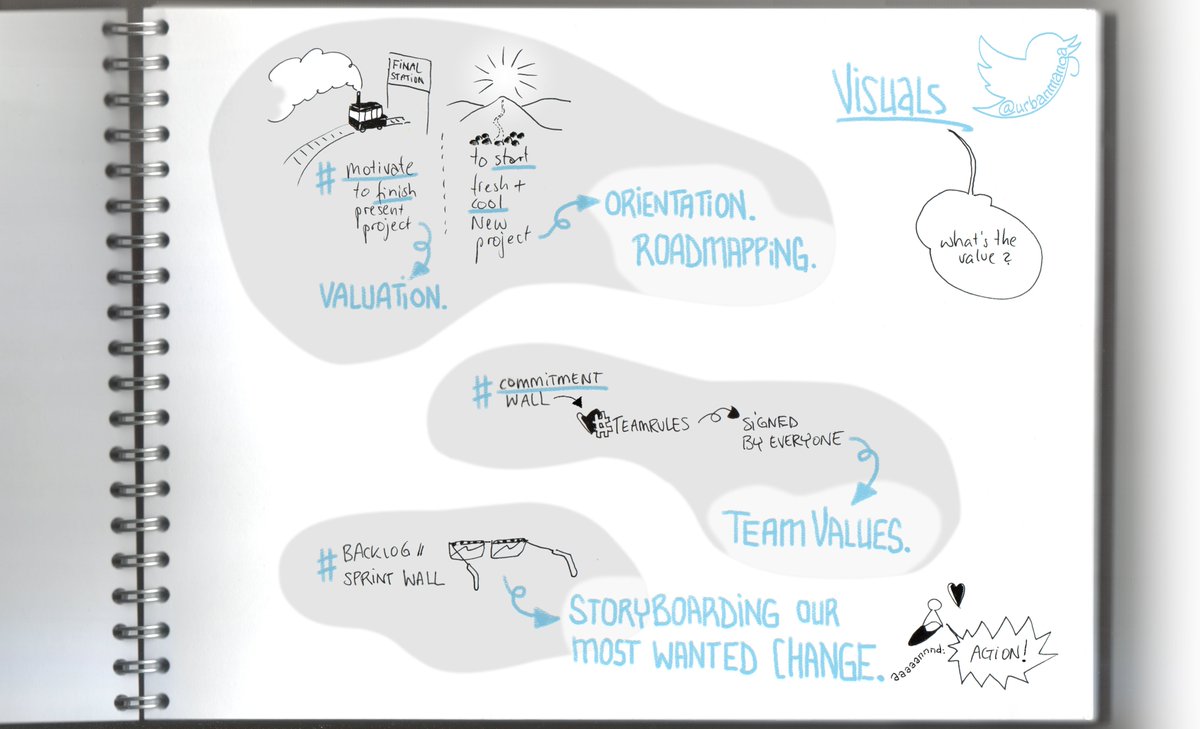 Visuals
@urbanmanoja
what's the
value?
FINAL
STATION
# motivate
to finish
present
project
VALUATION.
to start
fresh +
cool
New
project
ORIENTATION.
ROADMAPPING.
# COMMITMENT
WALL
#TEAMRULES
SIGNED
BY EVERYONE
TEAM VALUES.
# BACKLOG //
SPRINT WALL
STORYBOARDING OUR
MOST WANTED CHANGE.
aaaaannnd:
ACTION!